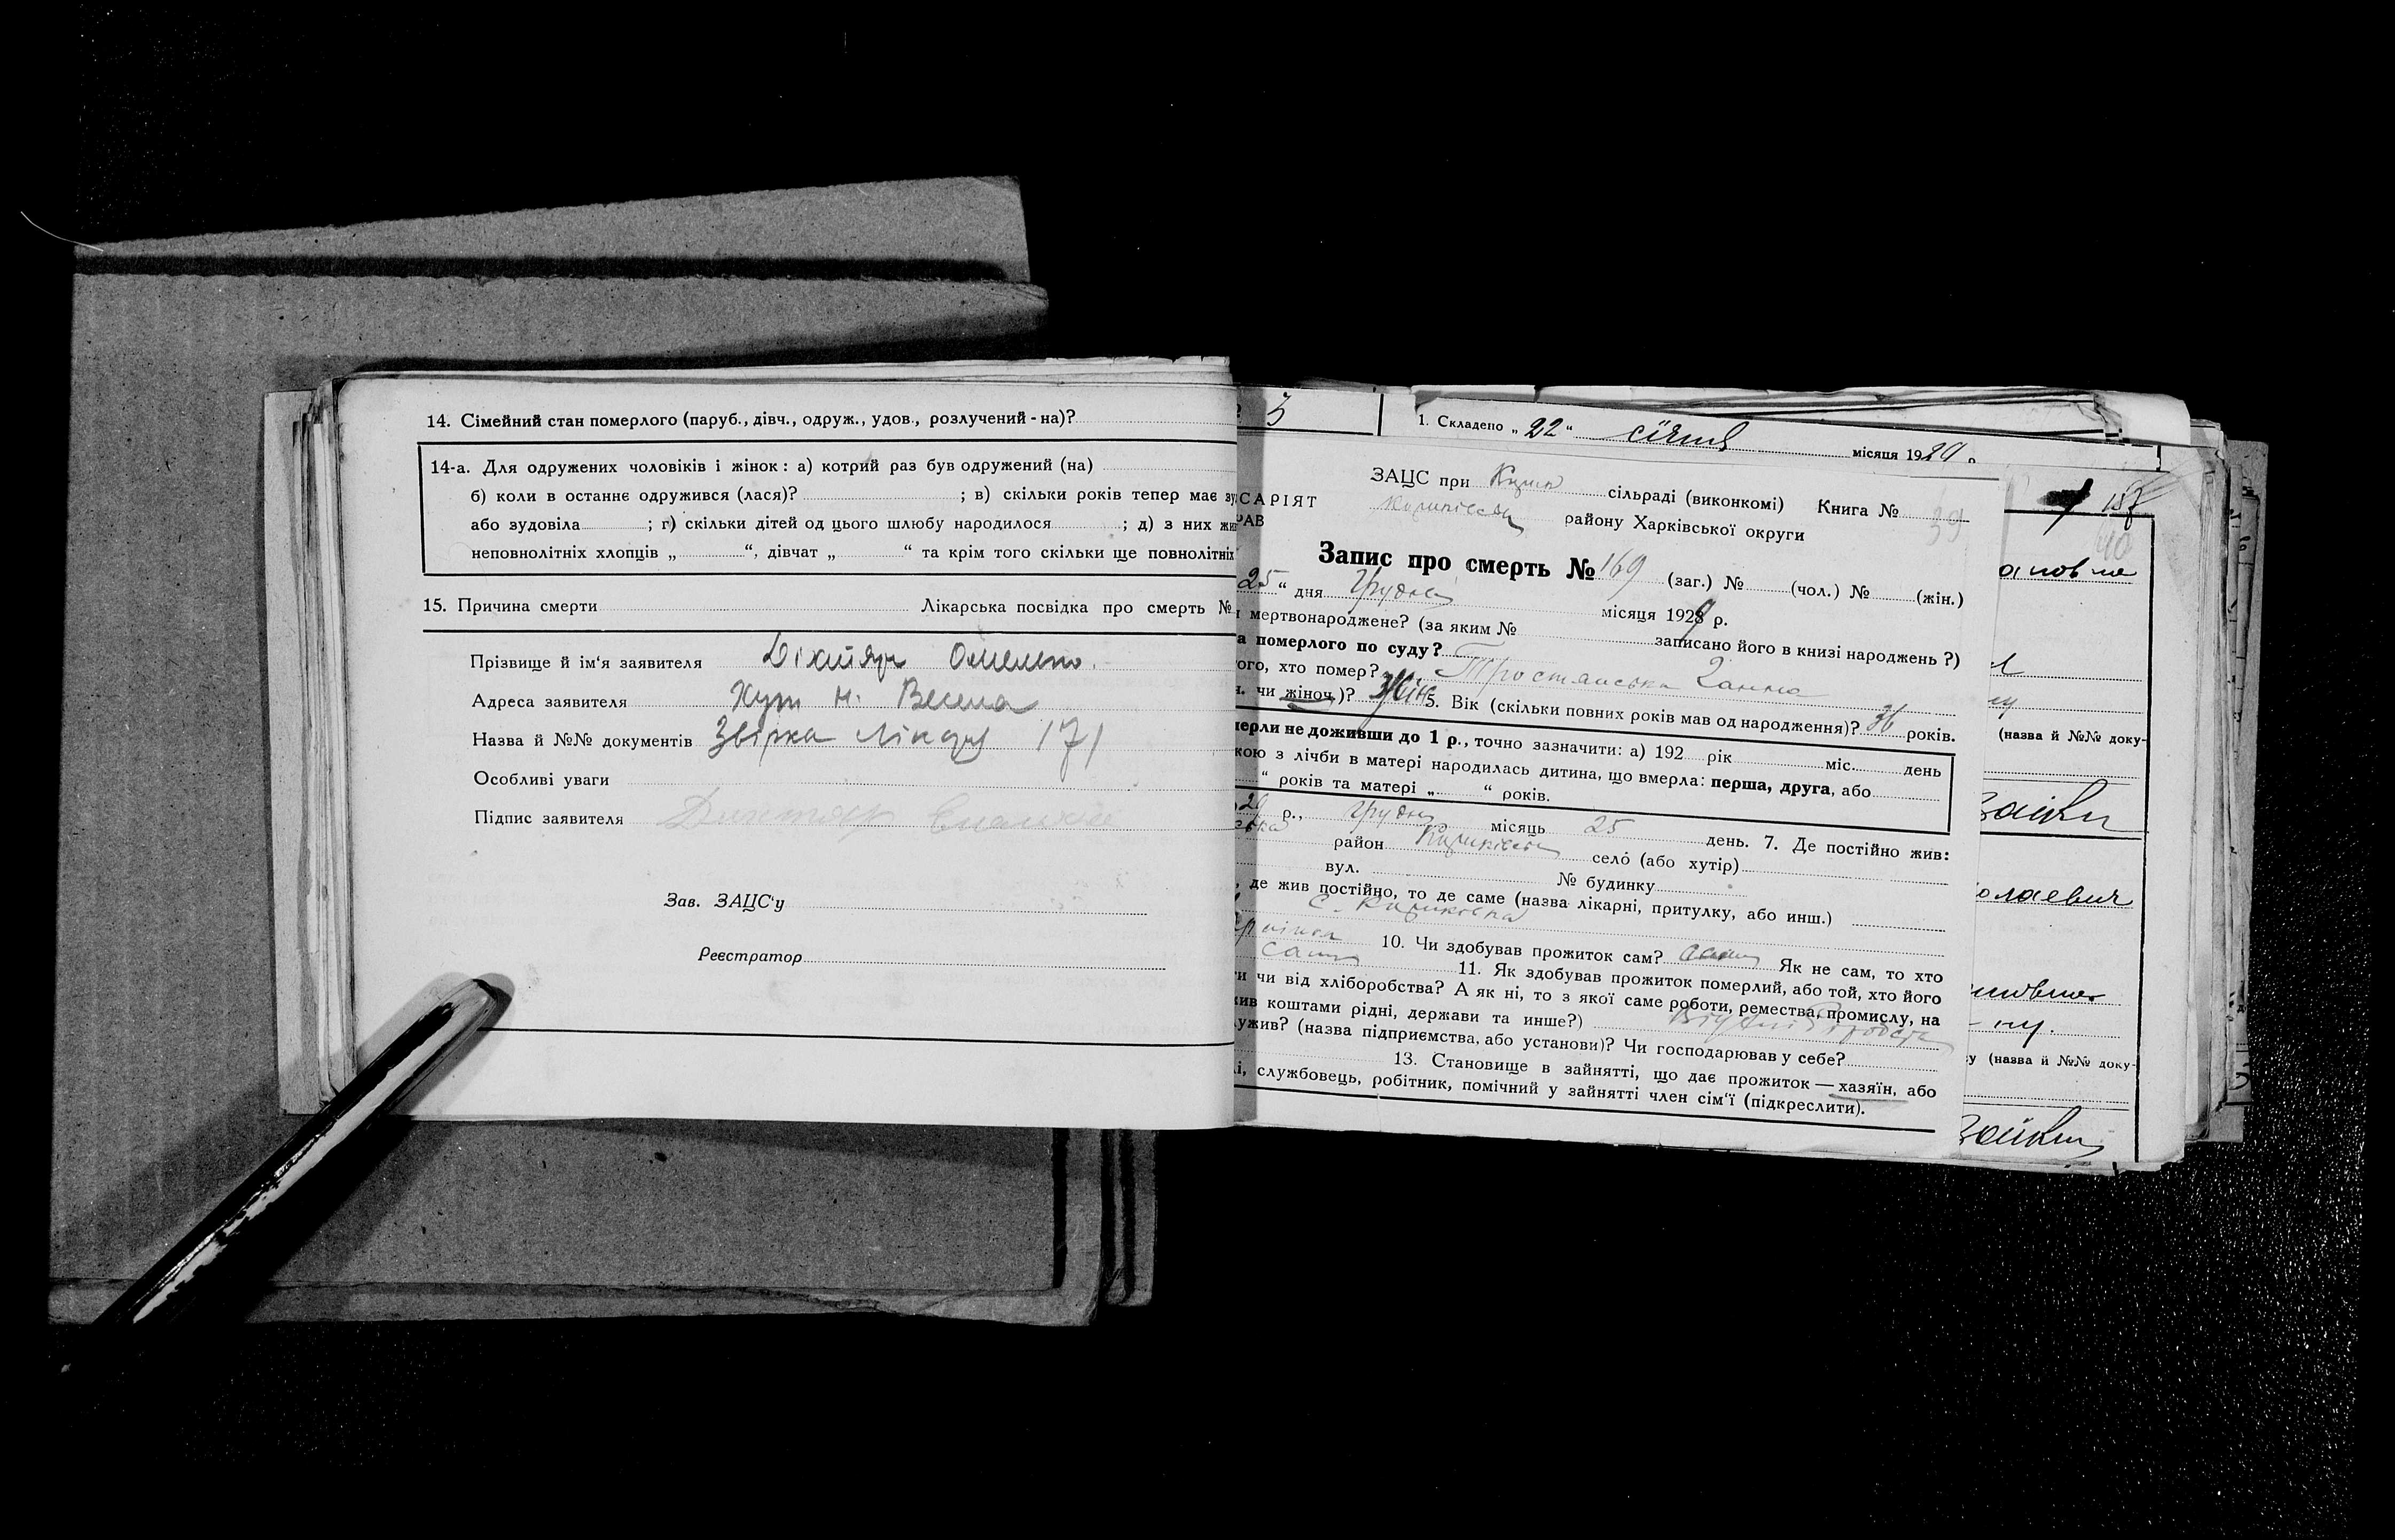 14. Сімейний стан померлого (паруб., дівч., одруж., удов., розлучений - на)?
14-а. Для одружених чоловіків і жінок: а) котрий раз був одружений (на)
б) коли в останнє одружився (лася)? ; в) скільки років тепер має
або зудовіла ; г) скільки дітей од цього шлюбу народилося ; д) з них
неповнолітніх хлопців „ “, дівчат „ “ та крім того скільки ще повнолітніх
15. Причина смерти Лікарська посвідка про смерть №
Прізвище й ім‘я заявителя Діхтяр
Адреса заявителя Хут. Н. Весела
Назва й №№ документів Звірка 171
Особливі уваги
Підпис заявителя Дихтяр
Зав. ЗАЦС‘у
Реєстратор
3
1. Складено „ 22 “ січня місяця 19
ЗАЦС при сільраді (виконкомі) Книга № 39
САРІЯТ
РАВ
району Харківської округи
Запис про смерть № 169 (заг.) № (чол.) № (жін.)
25 “ дня Грудня місяця 1929 р.
мертвонароджене? (за яким № записано його в книзі народжень ?)
а померлого по суду?
ого, хто помер? Тростянська Ганна
чи жіноч.)? Жін 5. Вік (скільки повних років мав од народження)? 36 років.
мерли не доживши до 1 р., точно зазначити: а) 192 рік міс. день
кою з лічби в матері народилась дитина, що вмерла: перша, друга, або
“ років та матері „ “ років.
29 р., Грудня місяць 25 день. 7. Де постійно жив:
район село (або хутір)
вул. № будинку
, де жив постійно, то де саме (назва лікарні, притулку, або инш.)
с.
10. Чи здобував прожиток сам? сам Як не сам, то хто
сам 11. Як здобував прожиток померлий, або той, хто його
ти чи від хліборобства? А як ні, то з якої саме роботи, ремества, промислу, на
жив коштами рідні, держави та инше?)
ужив? (назва підприємства, або установи)? Чи господарював у себе?
13. Становище в зайнятті, що дає прожиток — хазяїн, або
лі, службовець, робітник, помічний у зайнятті член сім‘ї (підкреслити).
187
40
ановна
(назва й №№ доку-
Зайки
олаевич
ну.
у (назва й №№ доку-
Зайки